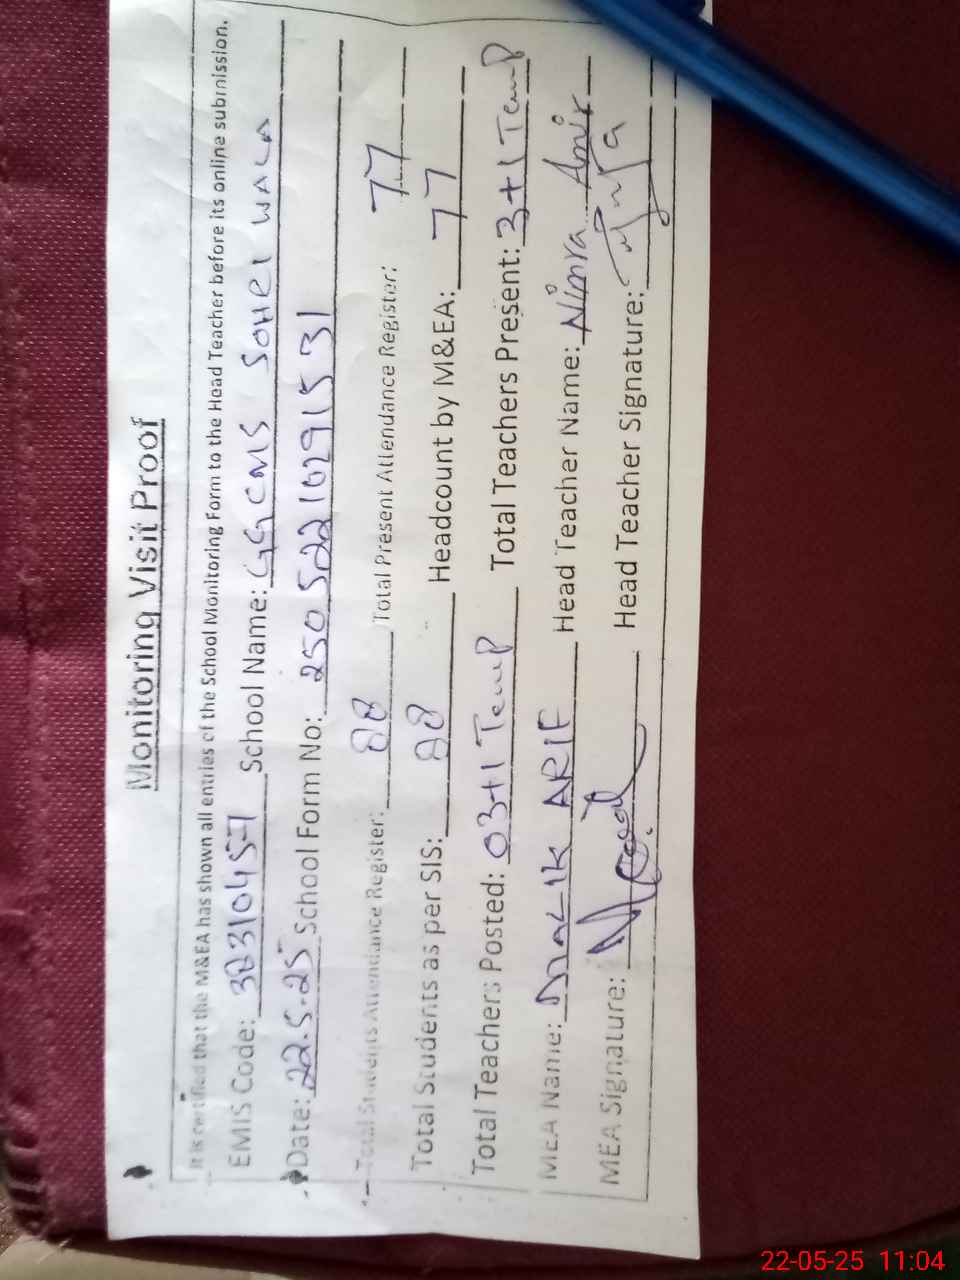 Monitoring Visit Proof
It is certified that the M&EA has shown all entries of the School Monitoring Form to the Head Teacher before its online submission.
EMIS Code: 38310457 School Name: GGCMS SOHEL WALA
Date: 22.5.25 School Form No: 250522102915 31
Total Students Attendance Register: 88 Total Present Attendance Register: 77
Total Students as per SIS: 88 Headcount by M&EA: 77
Total Teachers Posted: 03+1 Temp Total Teachers Present: 3+1 Temp
MEA Name: MALIK ARIF Head Teacher Name: Nimra Amir
MEA Signature: Head Teacher Signature:
22-05-25 11:04